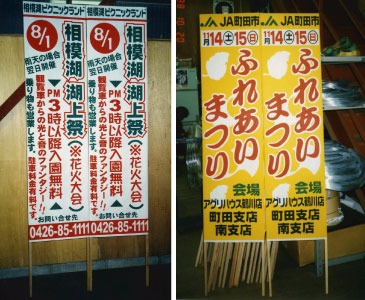 相模湖ピクニックランド
8/1
雨天の場合
翌日開催
相模湖湖上祭
(※花火大会)
PM3時以降入園無料
観覧車からの光と音のファンタジー!!
乗り物も営業します。駐車料金有料です。
お問い合せ先
0426-85-1111
相模湖ピクニックランド
8/1
雨天の場合
翌日開催
相模湖湖上祭
(※花火大会)
PM3時以降入園無料
観覧車からの光と音のファンタジー!!
乗り物も営業します。駐車料金有料です。
お問い合せ先
0426-85-1111
JA町田市
11月14土15日
ふれあい
まつり
会場
アグリハウス鶴川店
町田支店
南支店
JA町田市
11月14土15日
ふれあい
まつり
会場
アグリハウス鶴川店
町田支店
南支店